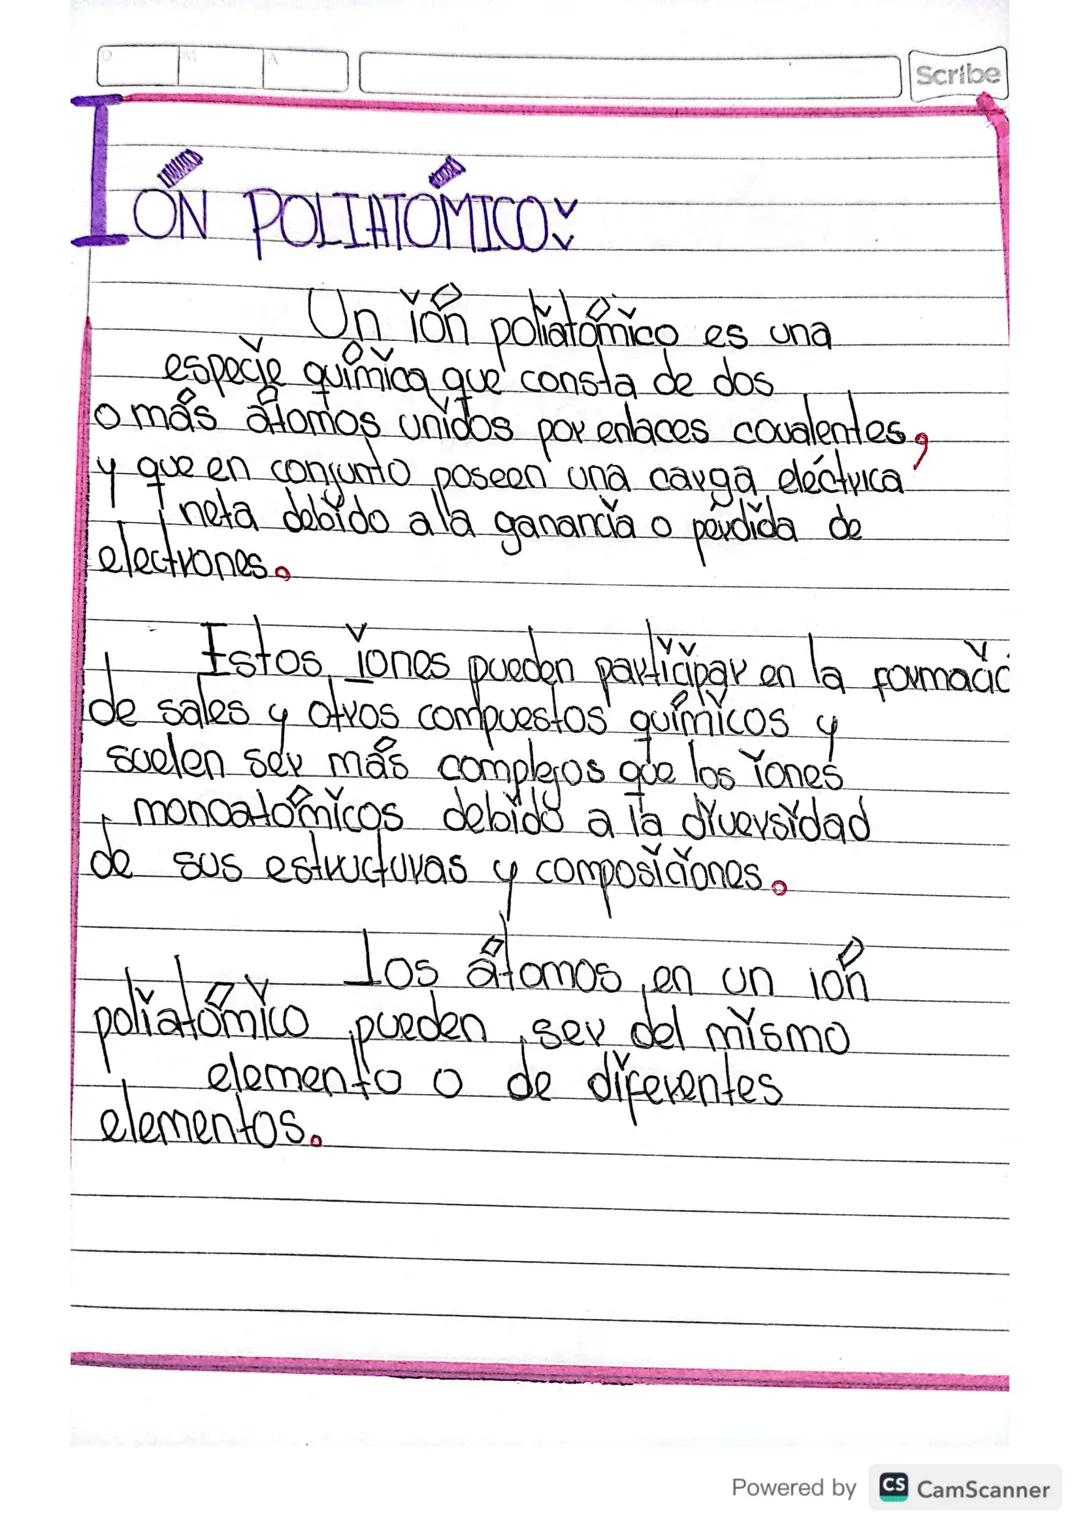 D M A
Scribe
IÓN POLIATÓMICO:
Un ión poliatómico es una
especie química que consta de dos
o más átomos unidos por enlaces covalentes,
y que en conjunto poseen una carga eléctrica
neta debido a la ganancia o pérdida de
electrones.
Estos iones pueden participar en la formació
de sales y otros compuestos químicos y
suelen ser más complejos que los iones
monoatómicos debido a la diversidad
de sus estructuras y composiciones.
Los átomos en un ión
poliatómico pueden ser del mismo
elemento o de diferentes
elementos.
Powered by CS CamScanner